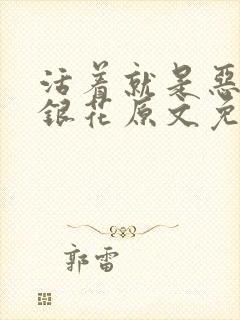 活着就是惡
銀花原文免
郭雷